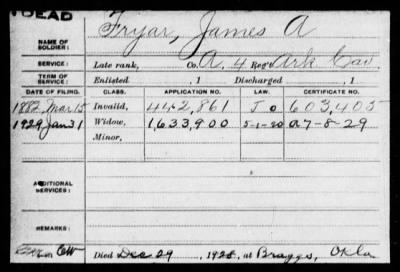 DEAD
NAME OF SOLDIER: Fryar, James A
SERVICE: Late rank, Co. A, 4 Reg't Ark Cav.
TERM OF SERVICE: Enlisted , 1 Discharged , 1
DATE OF FILING. CLASS. APPLICATION NO. LAW. CERTIFICATE NO.
1882 Mar 15 Invalid, 442,861 J 0 603,405
1929 Jan 31 Widow, 1,633,900 5-1-20 A 7-8-29
Minor,
ADDITIONAL SERVICES:
REMARKS:
Died Dec 29, 1928, at Braggs, Okla